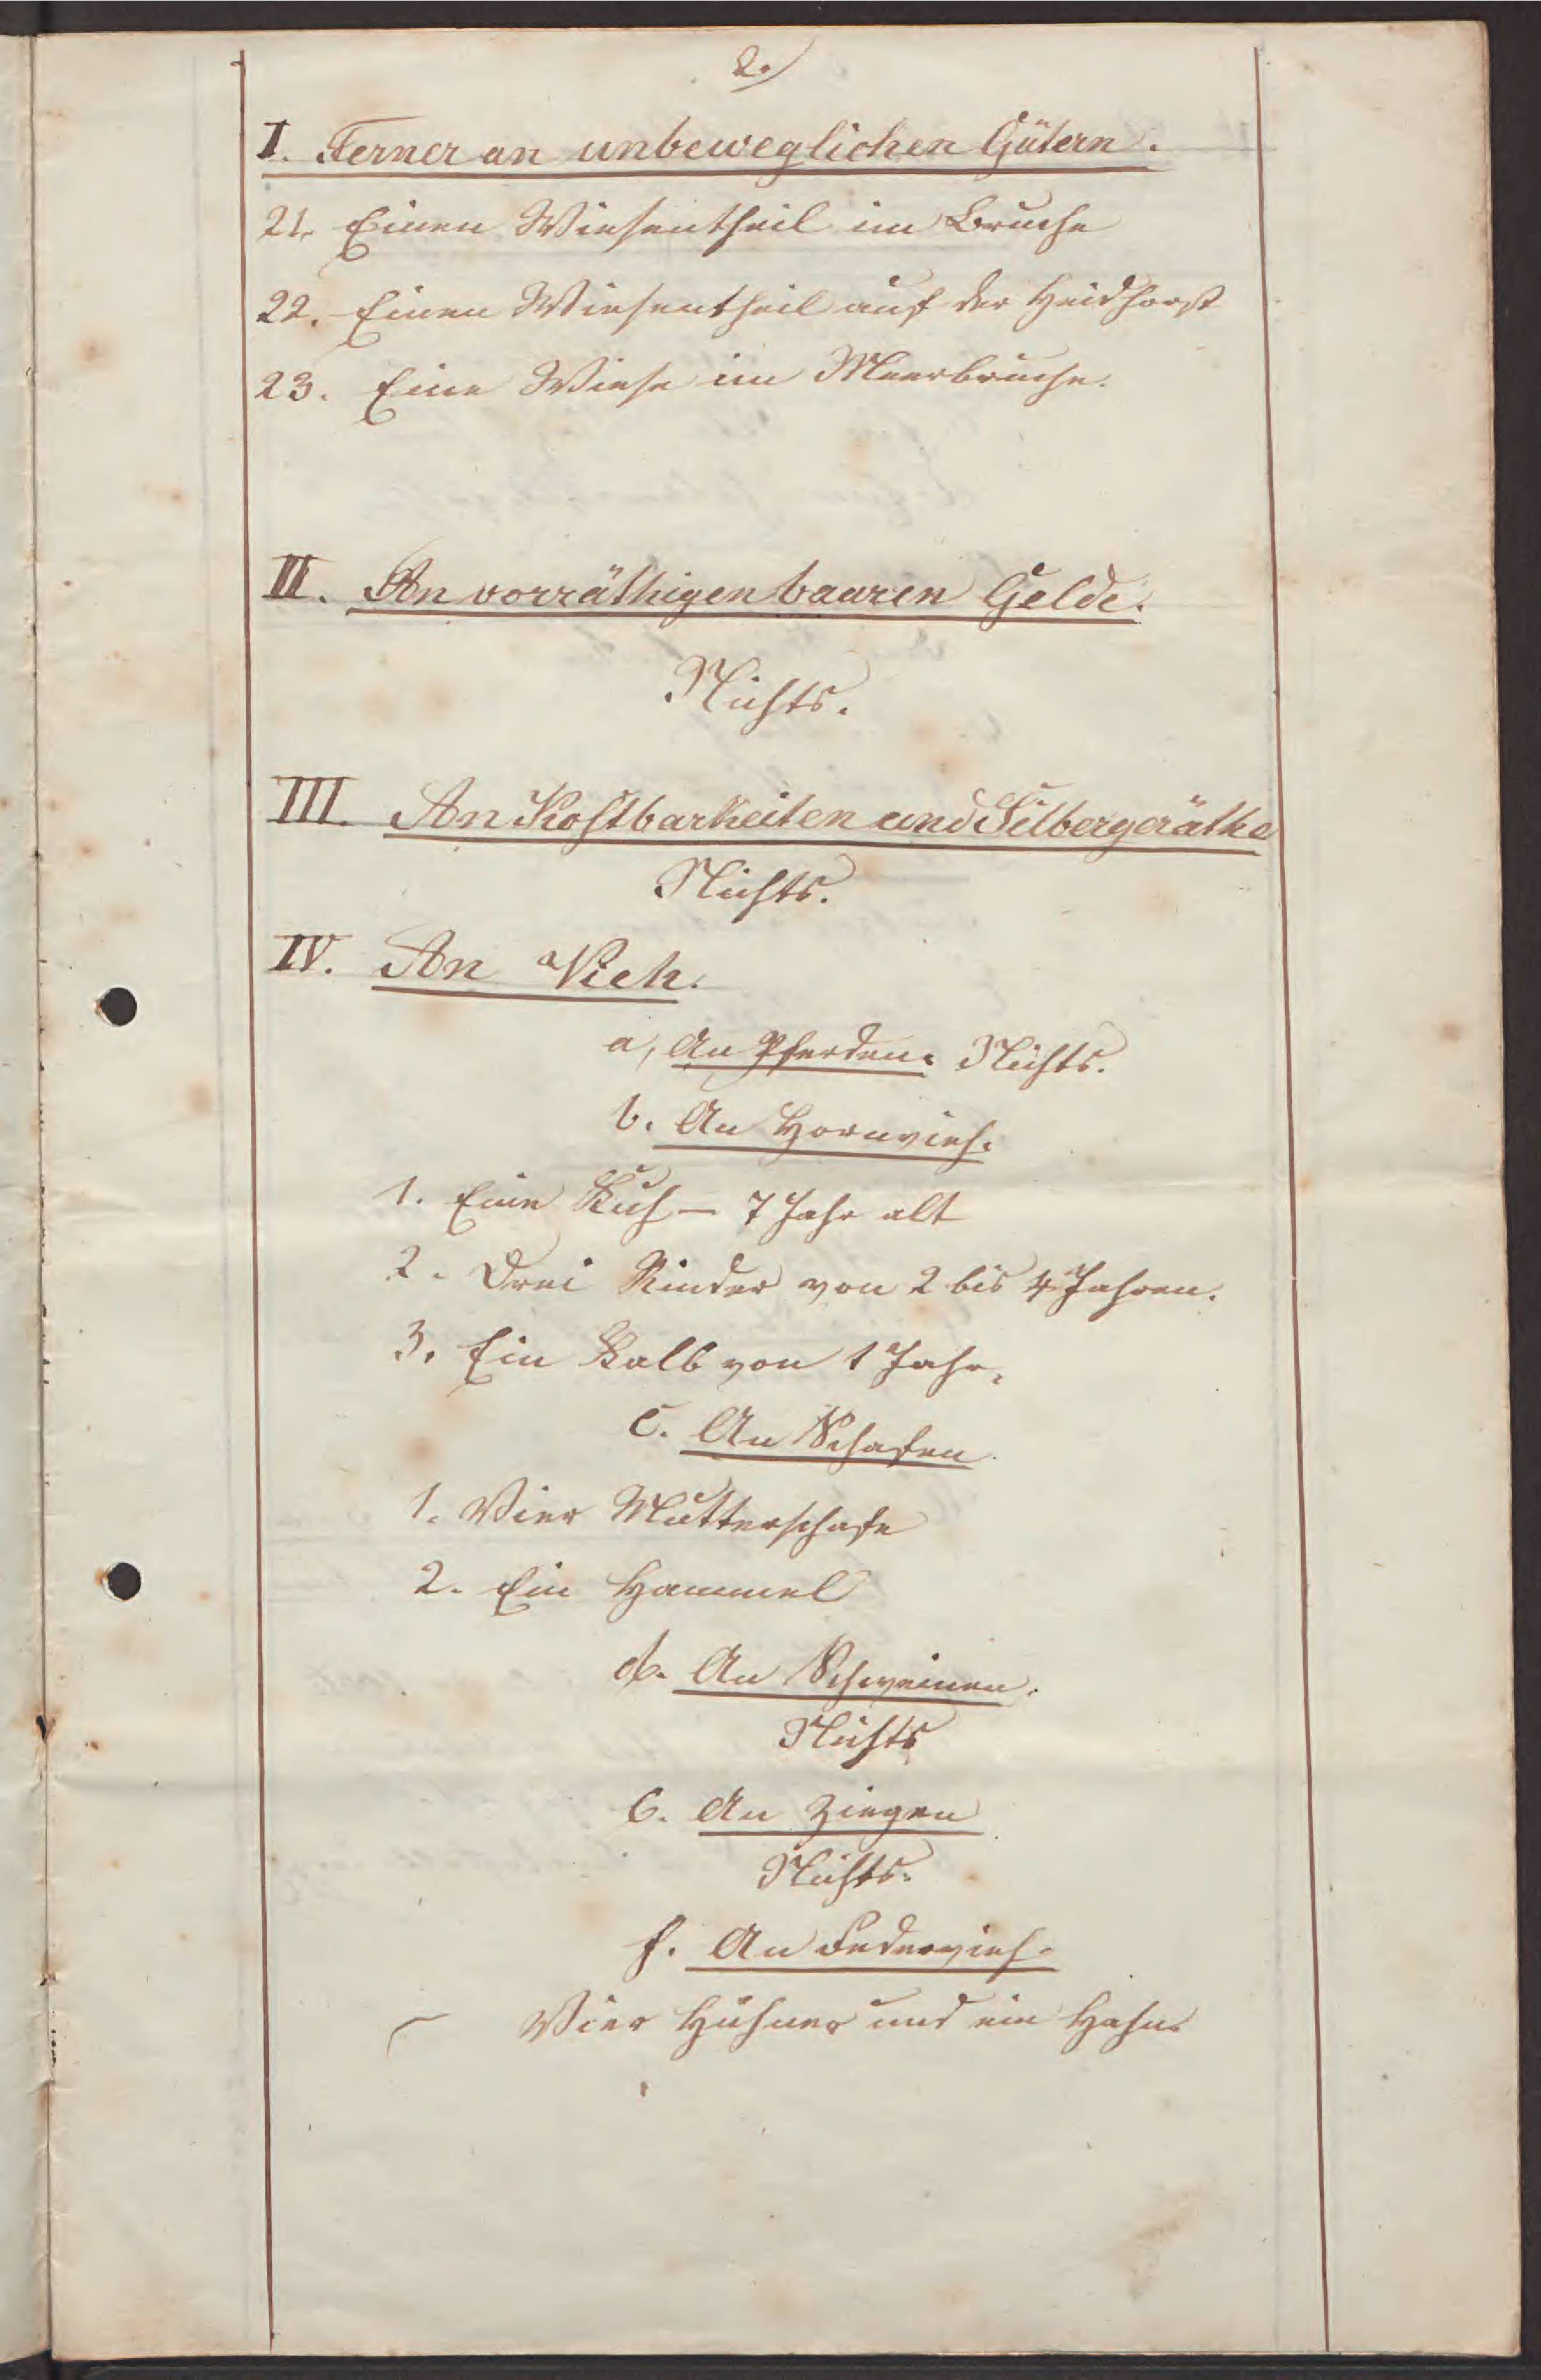 2.
I. Ferner an unbeweglichen Gütern.
21. Einen Wiesentheil im Bruche
22. Einen Wiesentheil auf der Heidhorst
23. Eine Wiese im Meerbruche.
II. An vorräthigen baaren Gelde.
Nichts.
III. An Kostbarkeiten und Silbergeräthe
Nichts.
IV. An Vieh.
a, An Pferden. Nichts.
b. An Hornvieh.
1. Eine Kuh — 7 Jahr alt
2. Drei Rinder von 2 bis 4 Jahren.
3. Ein Kalb von 1 Jahr.
c. An Schafen
1. Vier Mutterschafe
2. Ein Hammel
d. An Schweinen.
Nichts
e. An Ziegen
Nichts.
f. An Federvieh.
Vier Hühner und ein Hahn.